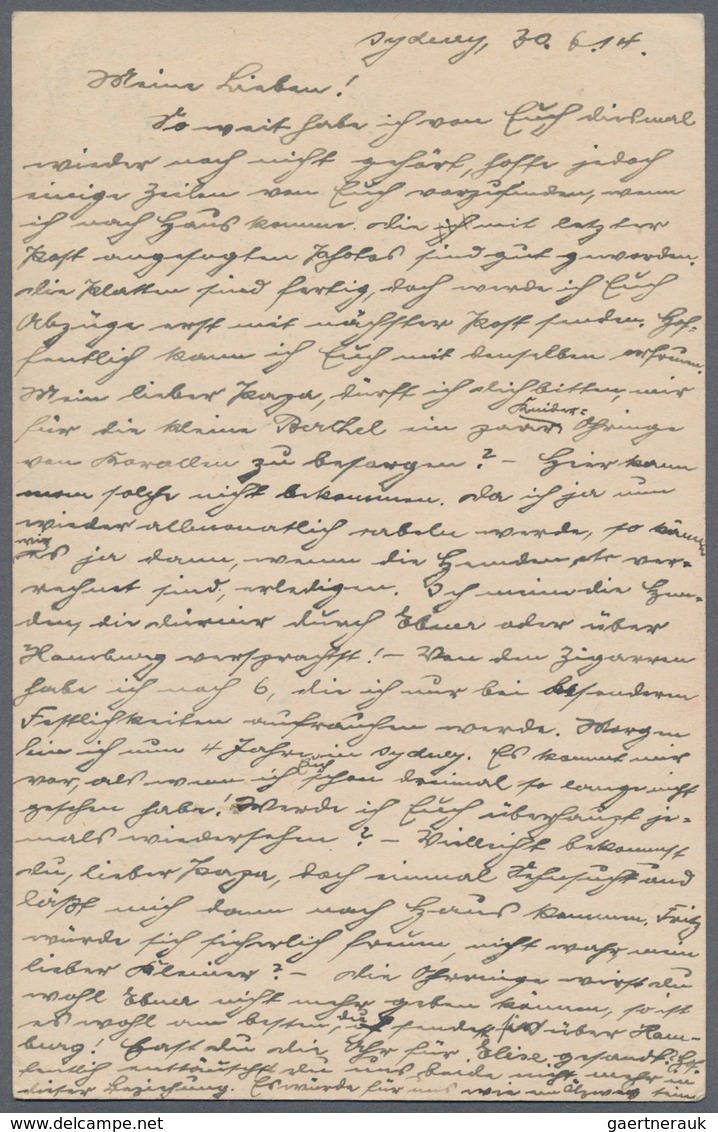 Sydney, 30. 6. 14.
Meine Lieben!
So weit habe ich von Euch diesmal
wieder noch nicht gehört, hoffe jedoch
einige Zeilen von Euch vorzufinden, wenn
ich nach Haus komme. Die mit letzter
Post angesagten Photos sind gut geworden.
Die Platten sind fertig, doch werde ich Euch
Abzüge erst mit nächster Post senden. Hof-
fentlich kann ich Euch mit denselben erfreuen.
Mein lieber Papa, dürft ich Dich bitten, mir
für die kleine ein paar Kinder- Ohringe
von Korallen zu besorgen? – Hier kann
man solche nicht bekommen. Da ich ja nun
wieder allmonatlich kabeln werde, so können
wir es ja dann, wenn die Hemden etc ver-
rechnet sind, erledigen. Ich meine die Hem-
den, die Du mir durch Ebner oder über
Hamburg versprachst! – Von den Zigarren
habe ich noch 6, die ich nur bei besonderen
Festlichkeiten aufrauchen werde. Morgen
bin ich nun 4 Jahre in Sydney. Es kommt mir
vor, als wenn ich Euch schon dreimal so lange nicht
gesehen habe! Werde ich Euch überhaupt je-
mals wiedersehen? – Vielleicht bekommst
Du, lieber Papa, doch einmal Sehnsucht und
läßt mich dann nach Haus kommen. Fritz
würde sich sicherlich freuen, nicht wahr, mein
lieber Kleiner? – Die Ohrringe wirst Du
wohl Ebner nicht mehr geben können, so ist
es wohl am besten, Du sendest über Ham-
burg! Hast Du die Uhr für Elise gesandt? Hof-
fentlich enttäuschst Du uns beide nicht mehr in
dieser Beziehung. Es würde für uns wie ein sein